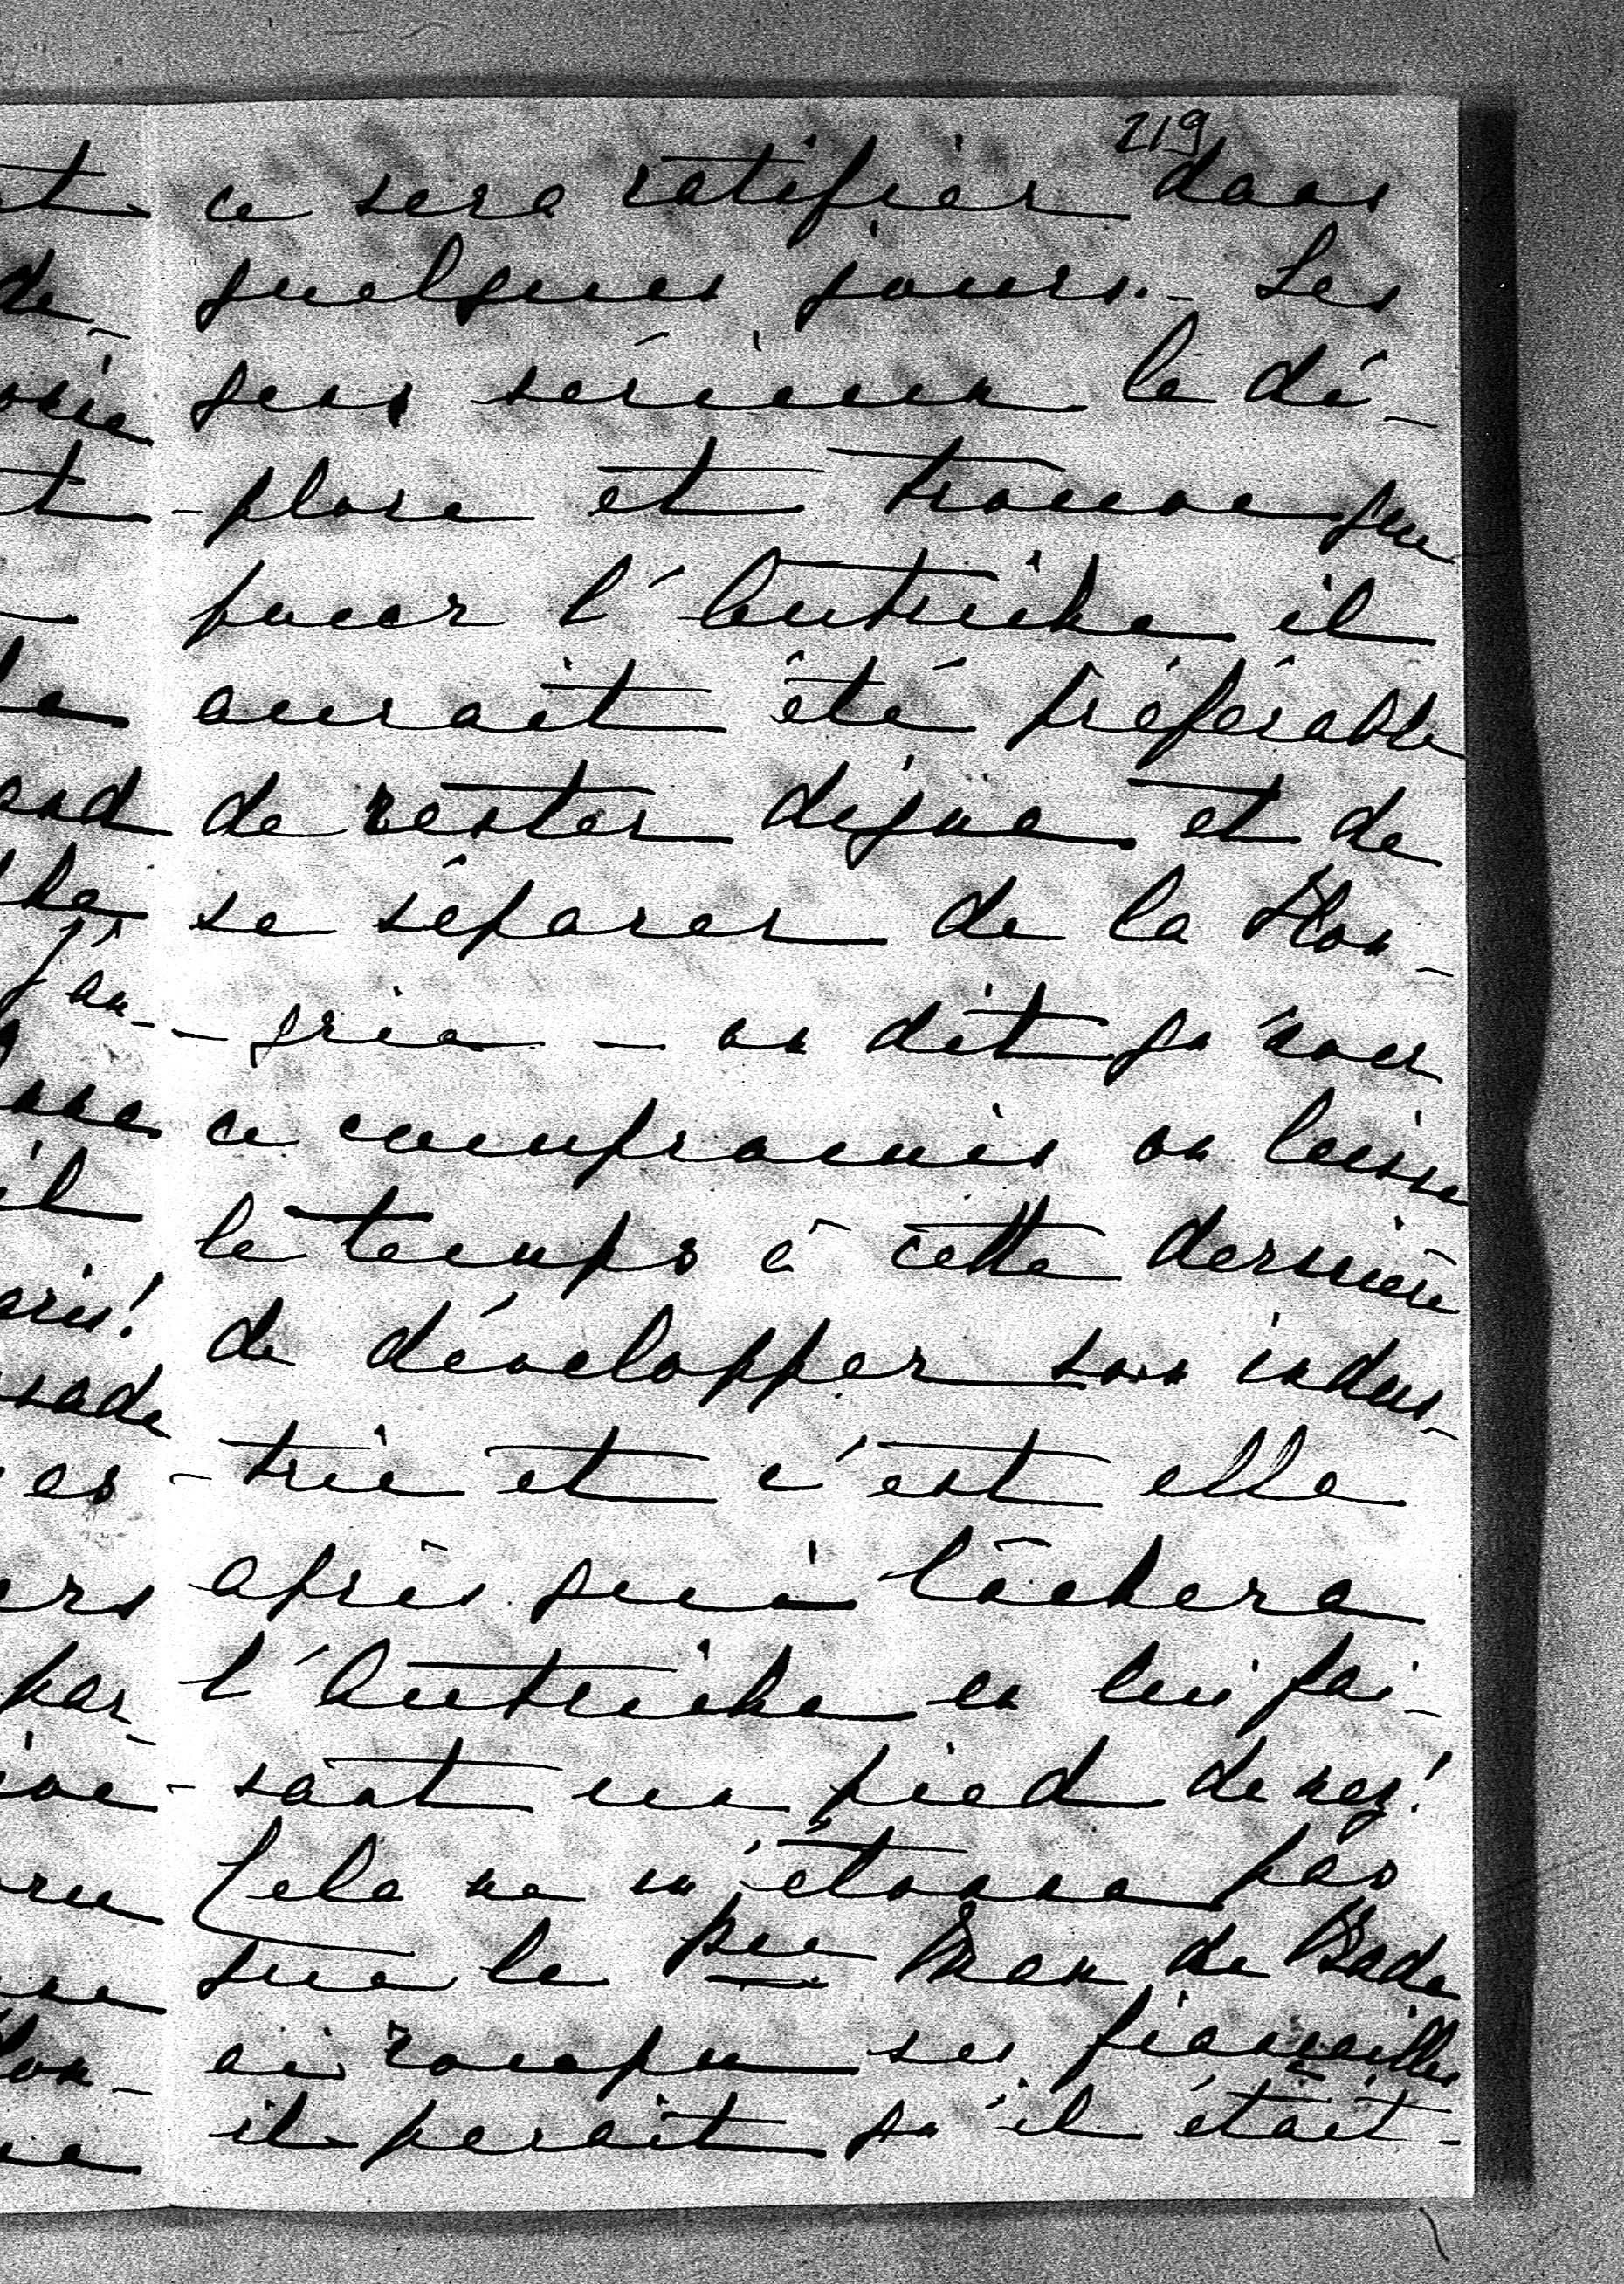 219
ce sera ratifier dans
quelques jours. - Les
gens sérieux le dé-
-plore et trouve que
pour l'Autriche il
aurait été préférable
de rester digne et de
se séparer de la Hon-
-grie - on dit qu'avec
ce compromis on laisse
le temps à cette dernière
de développer son indus-
-trie et c'est elle
après qui lâchera
l'Autriche en lui fai-
-sant un pied de nez!
Cela ne m'étonne pas
que le Max de Bade
ai rompu ses fiançailles
il parait qu'il était-